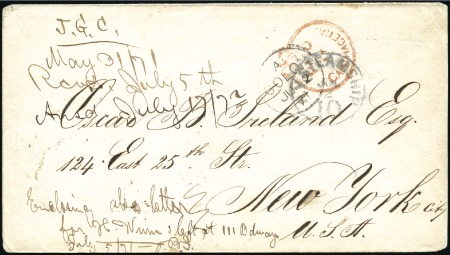 J.G.C.
May 31/71
Recd July 5th
Ansd July 17/72
Oscar B. Ireland Esq.
124 East 25th St.
New York City
U.S.A.
Enclosing also letter
for
left at 111 Bdway
July 5/71